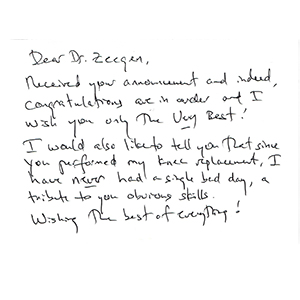 Dear Dr. Zeegen,
Received your announcement and indeed,
congratulations are in order and I
wish you only The Very Best!
I would also like to tell you that since
you performed my knee replacement, I
have never had a single bad day, a
tribute to you obvious skills.
Wishing The best of everything!